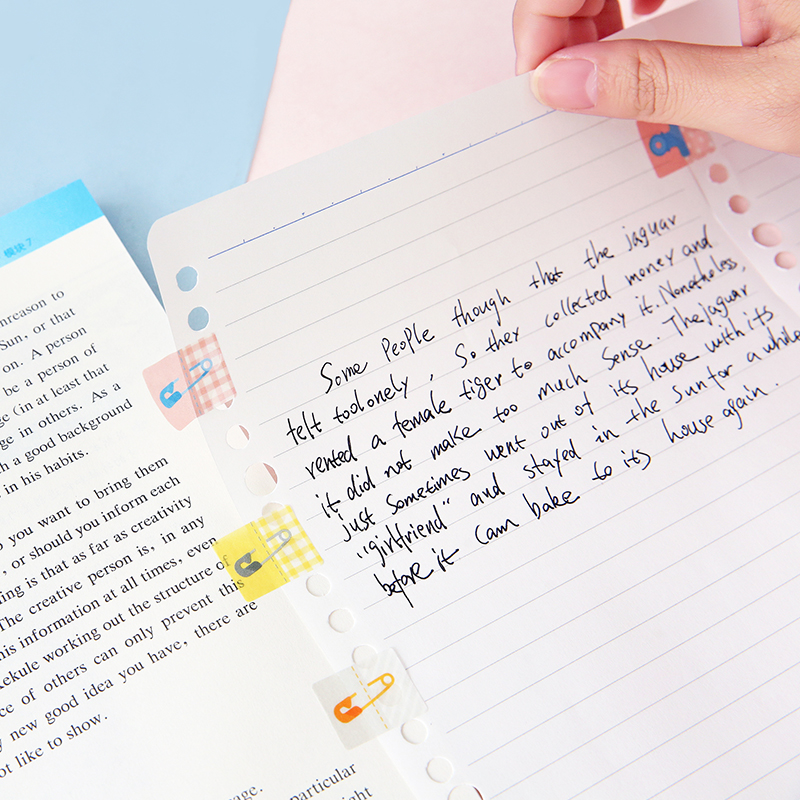 模块7
nreason to
Sun, or that
on. A person
be a person of
ge (in at least that
ge in others. As a
h a good background
in his habits.
o you want to bring them
, or should you inform each
ing is that as far as creativity
The creative person is, in any
his information at all times, even
Kekule working out the structure of
ce of others can only prevent this
y new good idea you have, there are
ot like to show.
age.
particular
ight
Some People though that the jaguar
felt toolonely, So they collected money and
rented a female tiger to accompany it. Nonetheless,
it did not make too much Sense. The jaguar
just sometimes went out of its house with its
"girlfriend" and stayed in the sun for a while
before it cam bake to its house again.